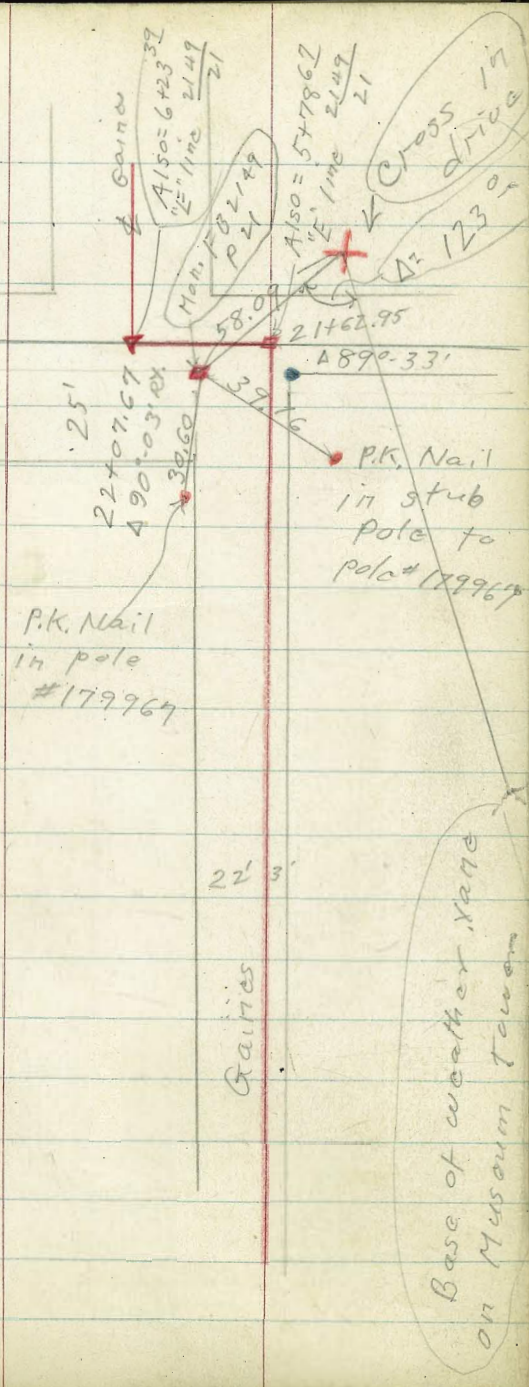 Gaines
Also = 6+23 39
"E" line 2149
21
Mon. FB 2149
P 21
Also = 5+78 67
"E" line 2149
21
Cross in
drive
Δ = 123° 05
58.09
21+62.95
Δ 89°-33'
39.16
25'
22+07.67
Δ 90°-03' Rt.
30.60
P.K. Nail
in stub
Pole to
pole #179967
P.K. Nail
in pole
#179967
22' 3'
Gaines
Base of weather vane
on Museum Tower